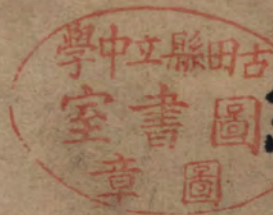 古田縣立中學
圖書室
圖章